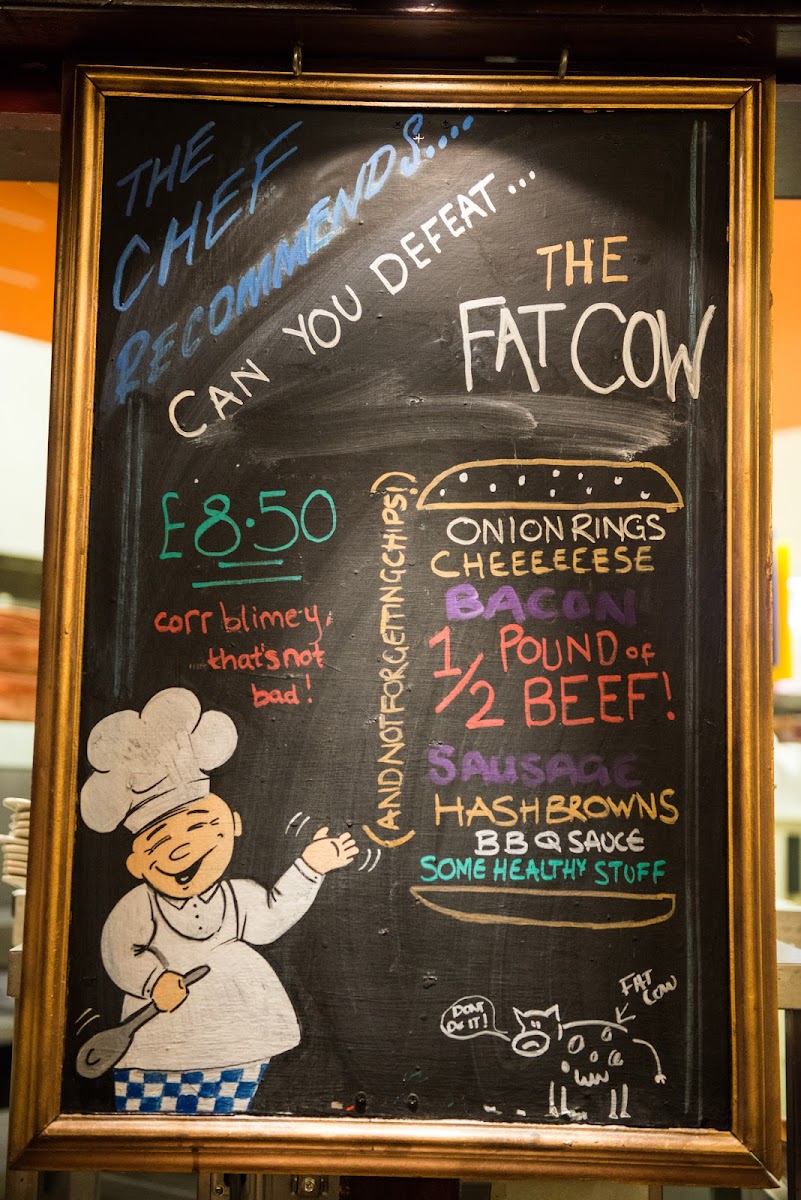 THE
CHEF
RECOMMENDS....
CAN YOU DEFEAT...
THE
FAT COW
£8.50
corr blimey,
that's not
bad!
(AND NOT FORGETTING CHIPS!)
ONION RINGS
CHEEEEEESE
BACON
1/2 POUND of
BEEF!
SAUSAGE
HASH BROWNS
BBQ SAUCE
SOME HEALTHY STUFF
FAT
COW
DONT
DO IT!